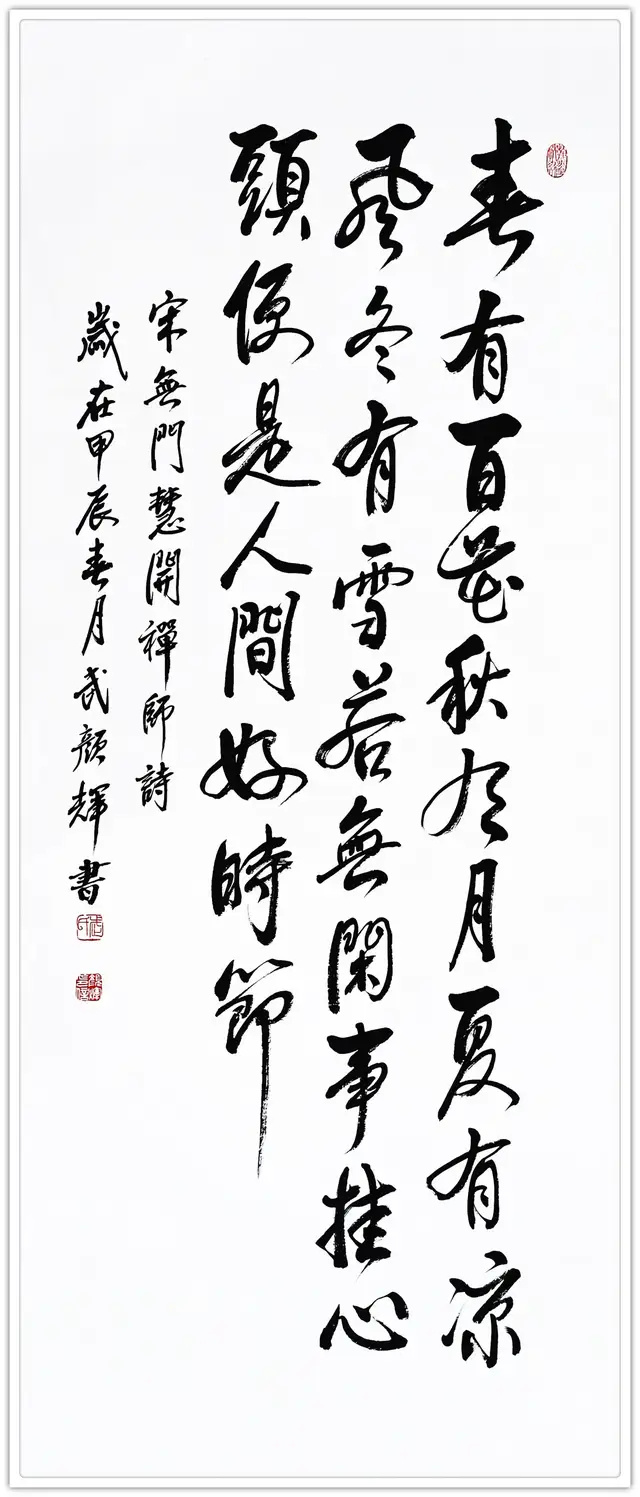 春有百花秋有月夏有凉
風冬有雪若無閑事挂心
頭便是人間好時節
宋無門慧開禪師詩
歲在甲辰春月武顏輝書